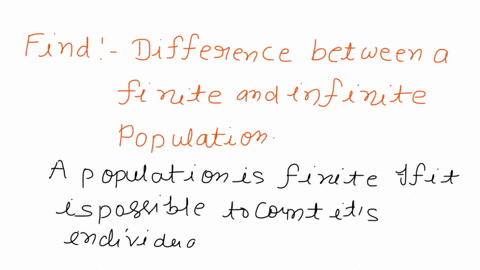 Find:- Difference between a
finite and infinite
Population.
A population is finite If it
is possible to Count it's
endividera